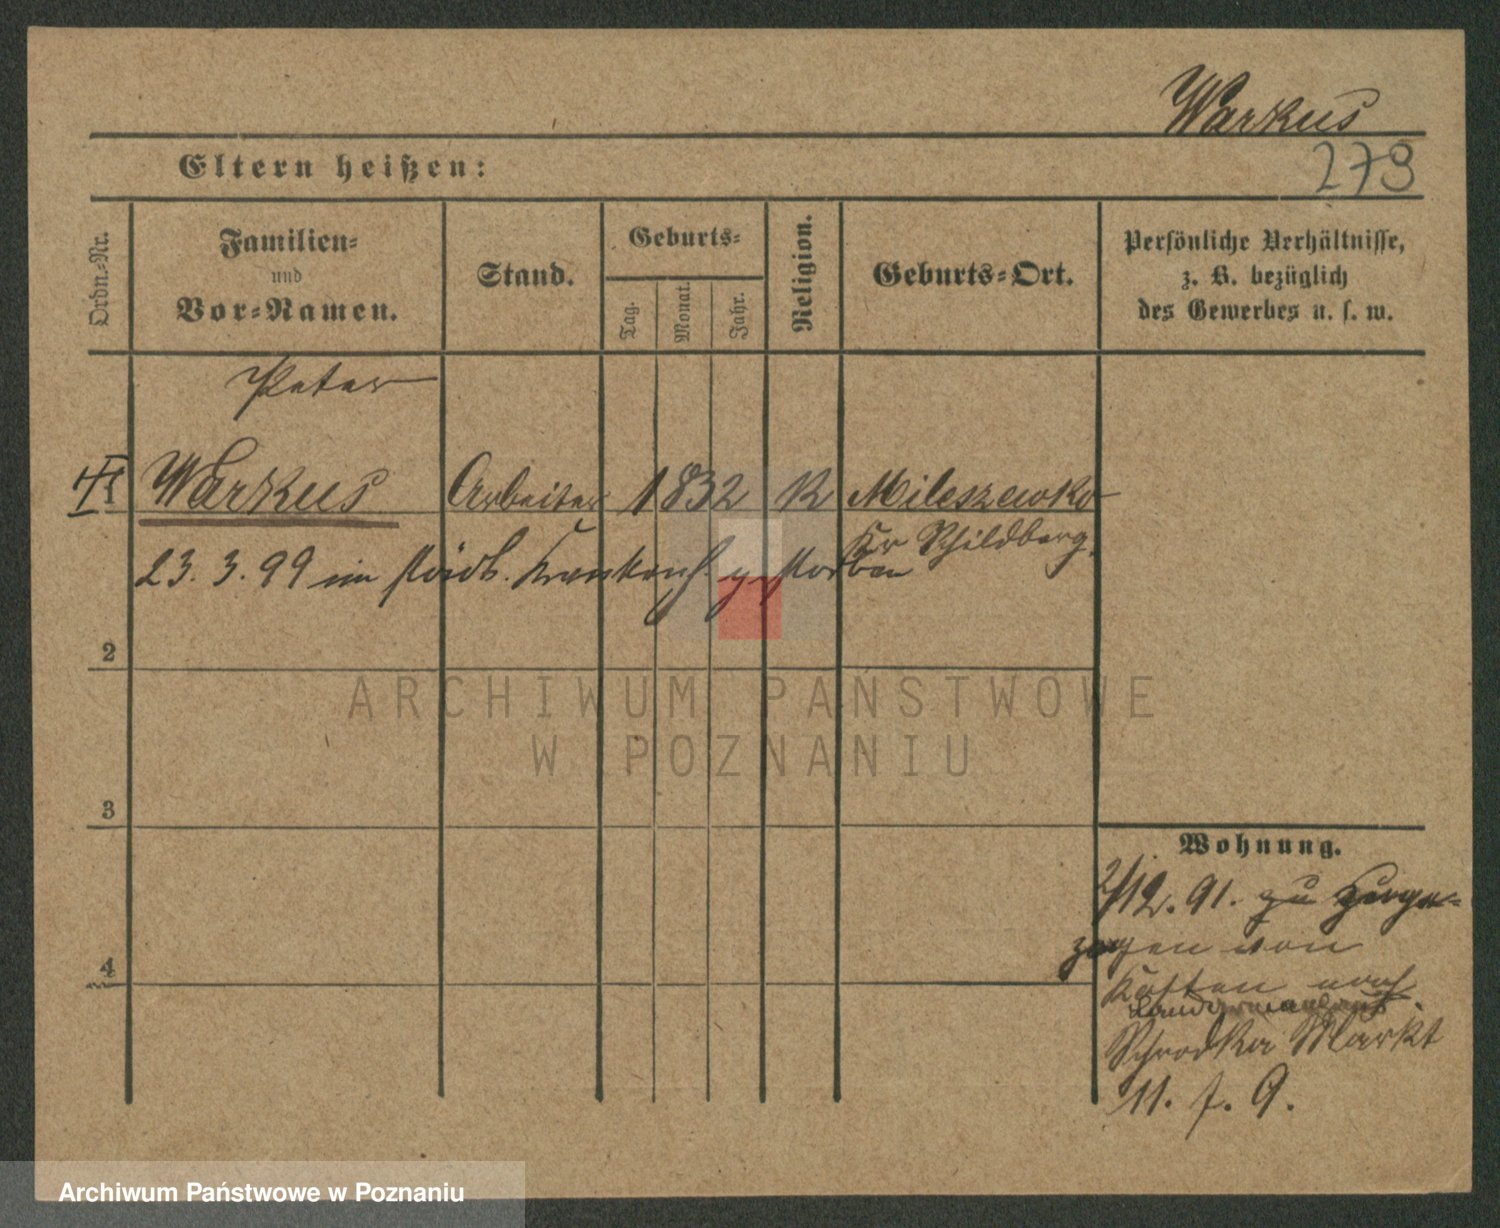 Warkus
Eltern heißen:
273
Ordn.-Nr.
Familien-
und
Vor-Namen.
Stand.
Geburts-
Tag.
Monat.
Jahr.
Religion.
Geburts-Ort.
Persönliche Verhältnisse,
z. B. bezüglich
des Gewerbes u. s. w.
Peter
1 Warkus Arbeiter 1832 K Mileszewko
Kr Schildberg.
23. 3. 99 im städt. Krankenh. gestorben
2
ARCHIWUM PAŃSTWOWE
W POZNANIU
3
4
Wohnung.
2/12. 91. zu
zogen von
Kosten nach
Schrodka Markt
11. 9.
Archiwum Państwowe w Poznaniu